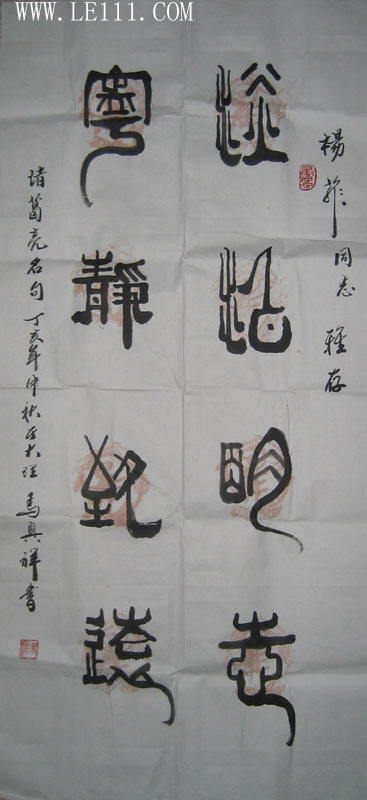 WWW.LE111.COM
楊菲同志雅存
澹泊明志
寧靜致遠
诸葛亮名句丁亥年仲秋於大理馬興祥書